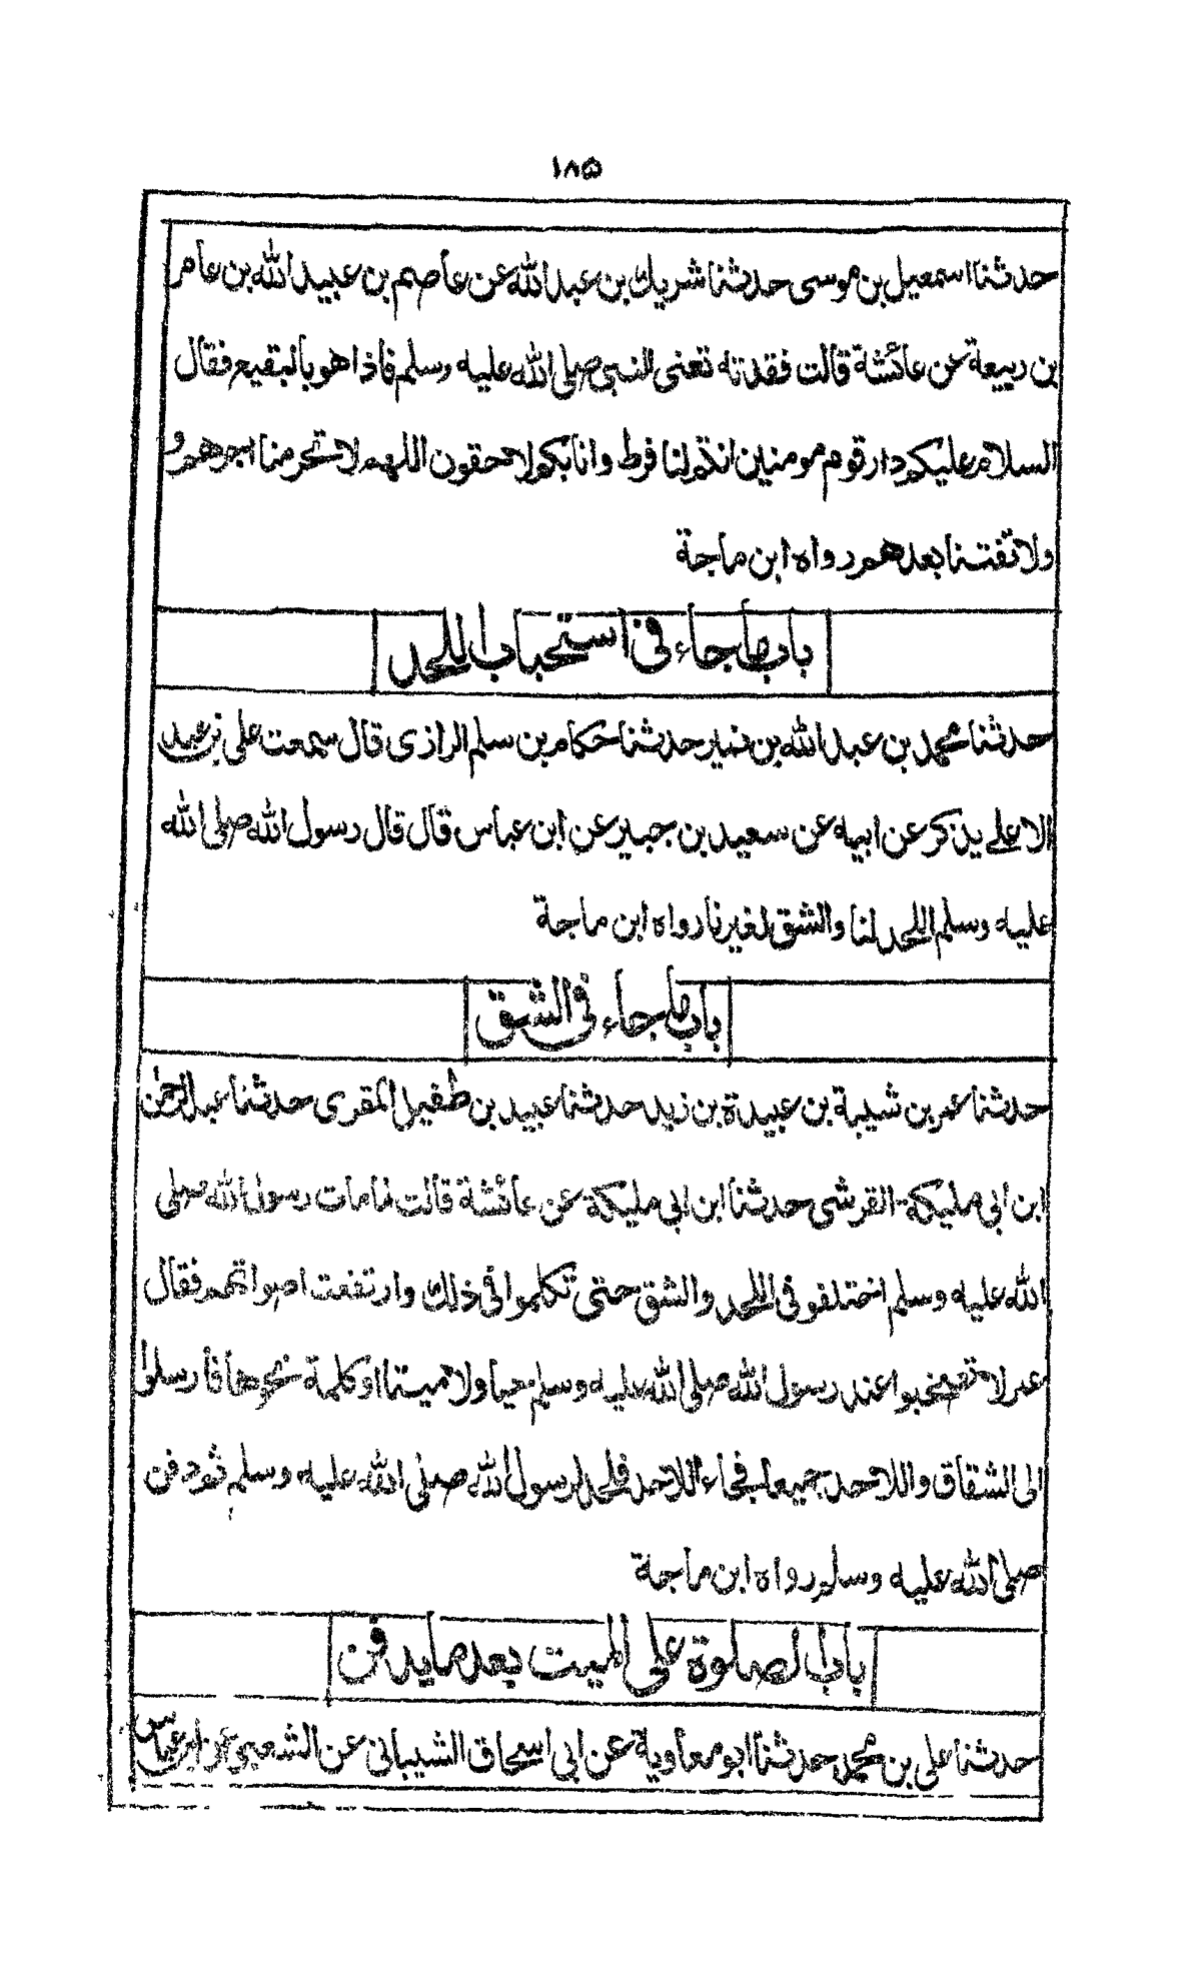 ۱۸۵
حدثنا اسمعيل بن موسى حدثنا شريك بن عبد الله عن عاصم بن عبيد الله بن عامر
بن ربيعة عن عائشة قالت فقدته تعنى النبي صلى الله عليه وسلم فاذا هو بالبقيع فقال
السلام عليكم دار قوم مومنين انتم لنا فرط وانا بكم لاحقون اللهم لا تحرمنا اجرهم و
ولا تفتنا بعدهم رواه ابن ماجة
باب ما جاء في استحباب اللحد
حدثنا محمد بن عبد الله بن نمير حدثنا حكام بن سلم الرازى قال سمعت على بن عبد
الاعلے يذكر عن ابيه عن سعيد بن جبير عن ابن عباس قال قال رسول الله صلى الله
عليه وسلم اللحد لنا والشق لغيرنا رواه ابن ماجة
باب ما جاء في الشق
حدثنا عمر بن شيبة بن عبيدة بن زيد حدثنا عبيد بن طفيل المقرى حدثنا عبد الرحمن
ابن ابي مليكة القرشى حدثنا ابن ابي مليكة عن عائشة قالت لما مات رسول الله صلى
الله عليه وسلم اختلفو في اللحد والشق حتى تكلموا في ذلك وارتفعت اصواتهم فقال
عمر لا تصخبوا عند رسول الله صلى الله عليه وسلم حيا ولا ميتا او كلمة نحوها فارسلوا
الى الشقاق واللاحد جميعا فجاء اللاحد فلحد لرسول الله صلى الله عليه وسلم ثم دفن
صلى الله عليه وسلم رواه ابن ماجة
باب الصلوة على الميت بعد ما يدفن
حدثنا على بن محمد حدثنا ابو معاوية عن ابي اسحاق الشيبانى عن الشعبي عن ابن عباس